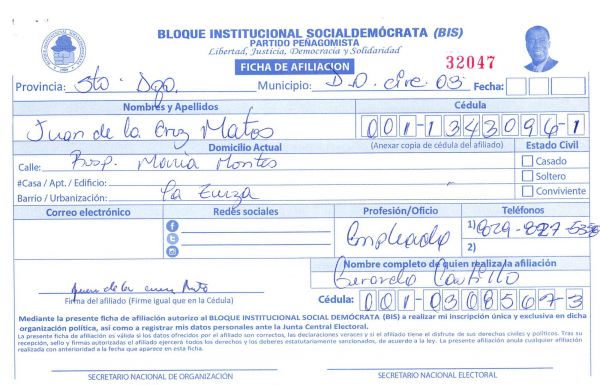 BLOQUE INSTITUCIONAL SOCIALDEMÓCRATA (BIS)
PARTIDO PEÑAGOMISTA
Libertad, Justicia, Democracia y Solidaridad
FICHA DE AFILIACION
32047
Provincia: Sto. Dgo. Municipio: D.D. circ. 03 Fecha:
Nombres y Apellidos Cédula
Juan de la Cruz Matos 001-1343096-1
Domicilio Actual (Anexar copia de cédula del afiliado) Estado Civil
Calle: Rosp. Maria Montes Casado
#Casa / Apt. / Edificio: Soltero
Barrio / Urbanización: La Zurza Conviviente
Correo electrónico Redes sociales Profesión/Oficio Teléfonos
Empleado 1) 829-827-5356
2)
Nombre completo de quien realiza la afiliación
Gerardo Castillo
Juan de la Cruz Mato
Firma del afiliado (Firme igual que en la Cédula) Cédula: 001-0308567-3
Mediante la presente ficha de afiliación autorizo al BLOQUE INSTITUCIONAL SOCIAL DEMÓCRATA (BIS) a realizar mi inscripción única y exclusiva en dicha
organización política, así como a registrar mis datos personales ante la Junta Central Electoral.
La presente ficha de afiliación es válida si los datos ofrecidos por el afiliado son correctos, las declaraciones veraces y si el titular tiene el disfrute de sus derechos civiles y políticos. Tras su
recepción, sello y firmas autorizadas el afiliado ejercerá todos los derechos y los deberes estatutariamente sancionados, de acuerdo a la ley. La presente afiliación anula cualquier afiliación
realizada con anterioridad a la fecha que aparece en esta ficha.
SECRETARIO NACIONAL DE ORGANIZACIÓN SECRETARIO NACIONAL ELECTORAL